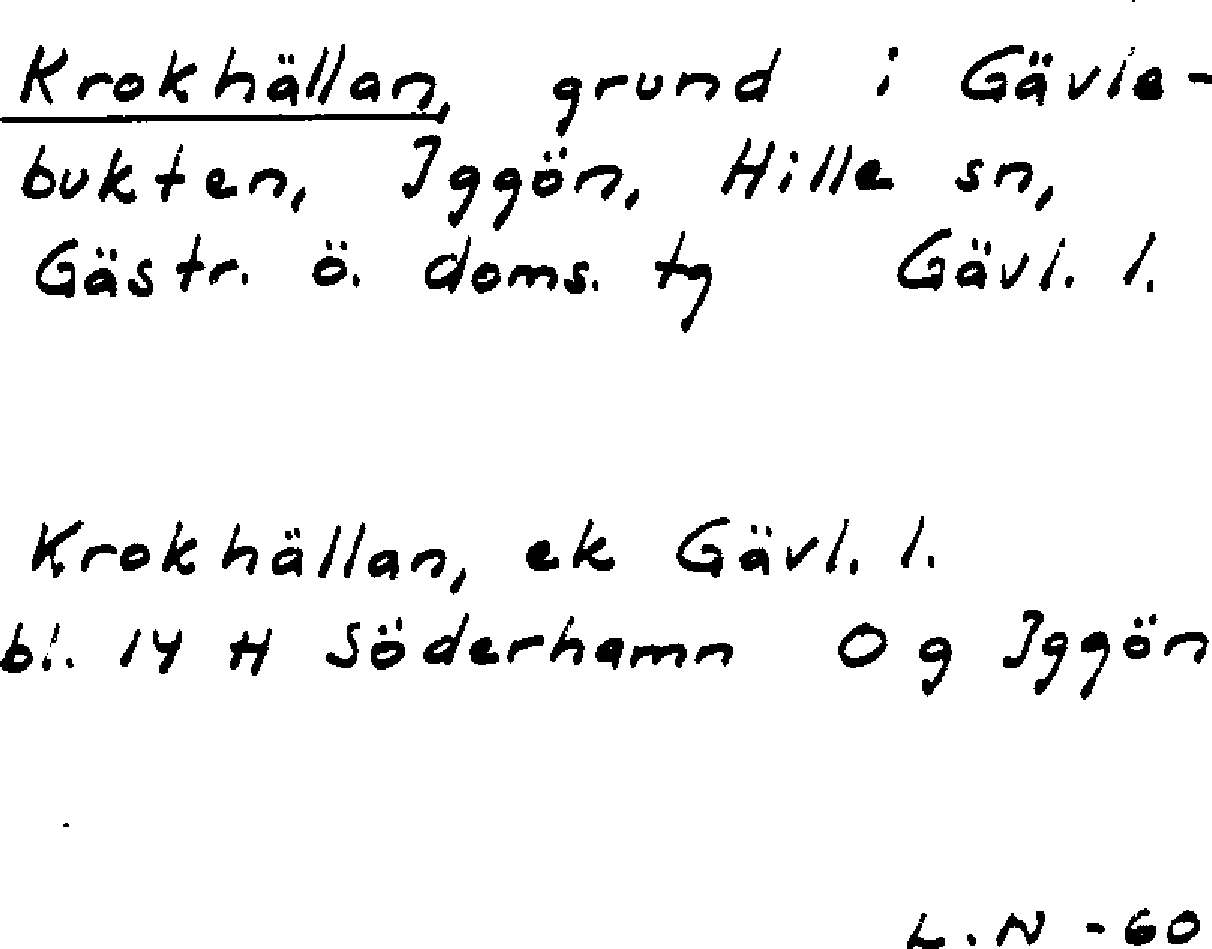 Krokhällan, grund i Gävle-
bukten, Iggön, Hille sn,
Gästr. ö. doms. tg Gävl. l.
Krokhällan, ek Gävl. l.
bl. 14 H Söderhamn 0 g Iggön
L.N -60